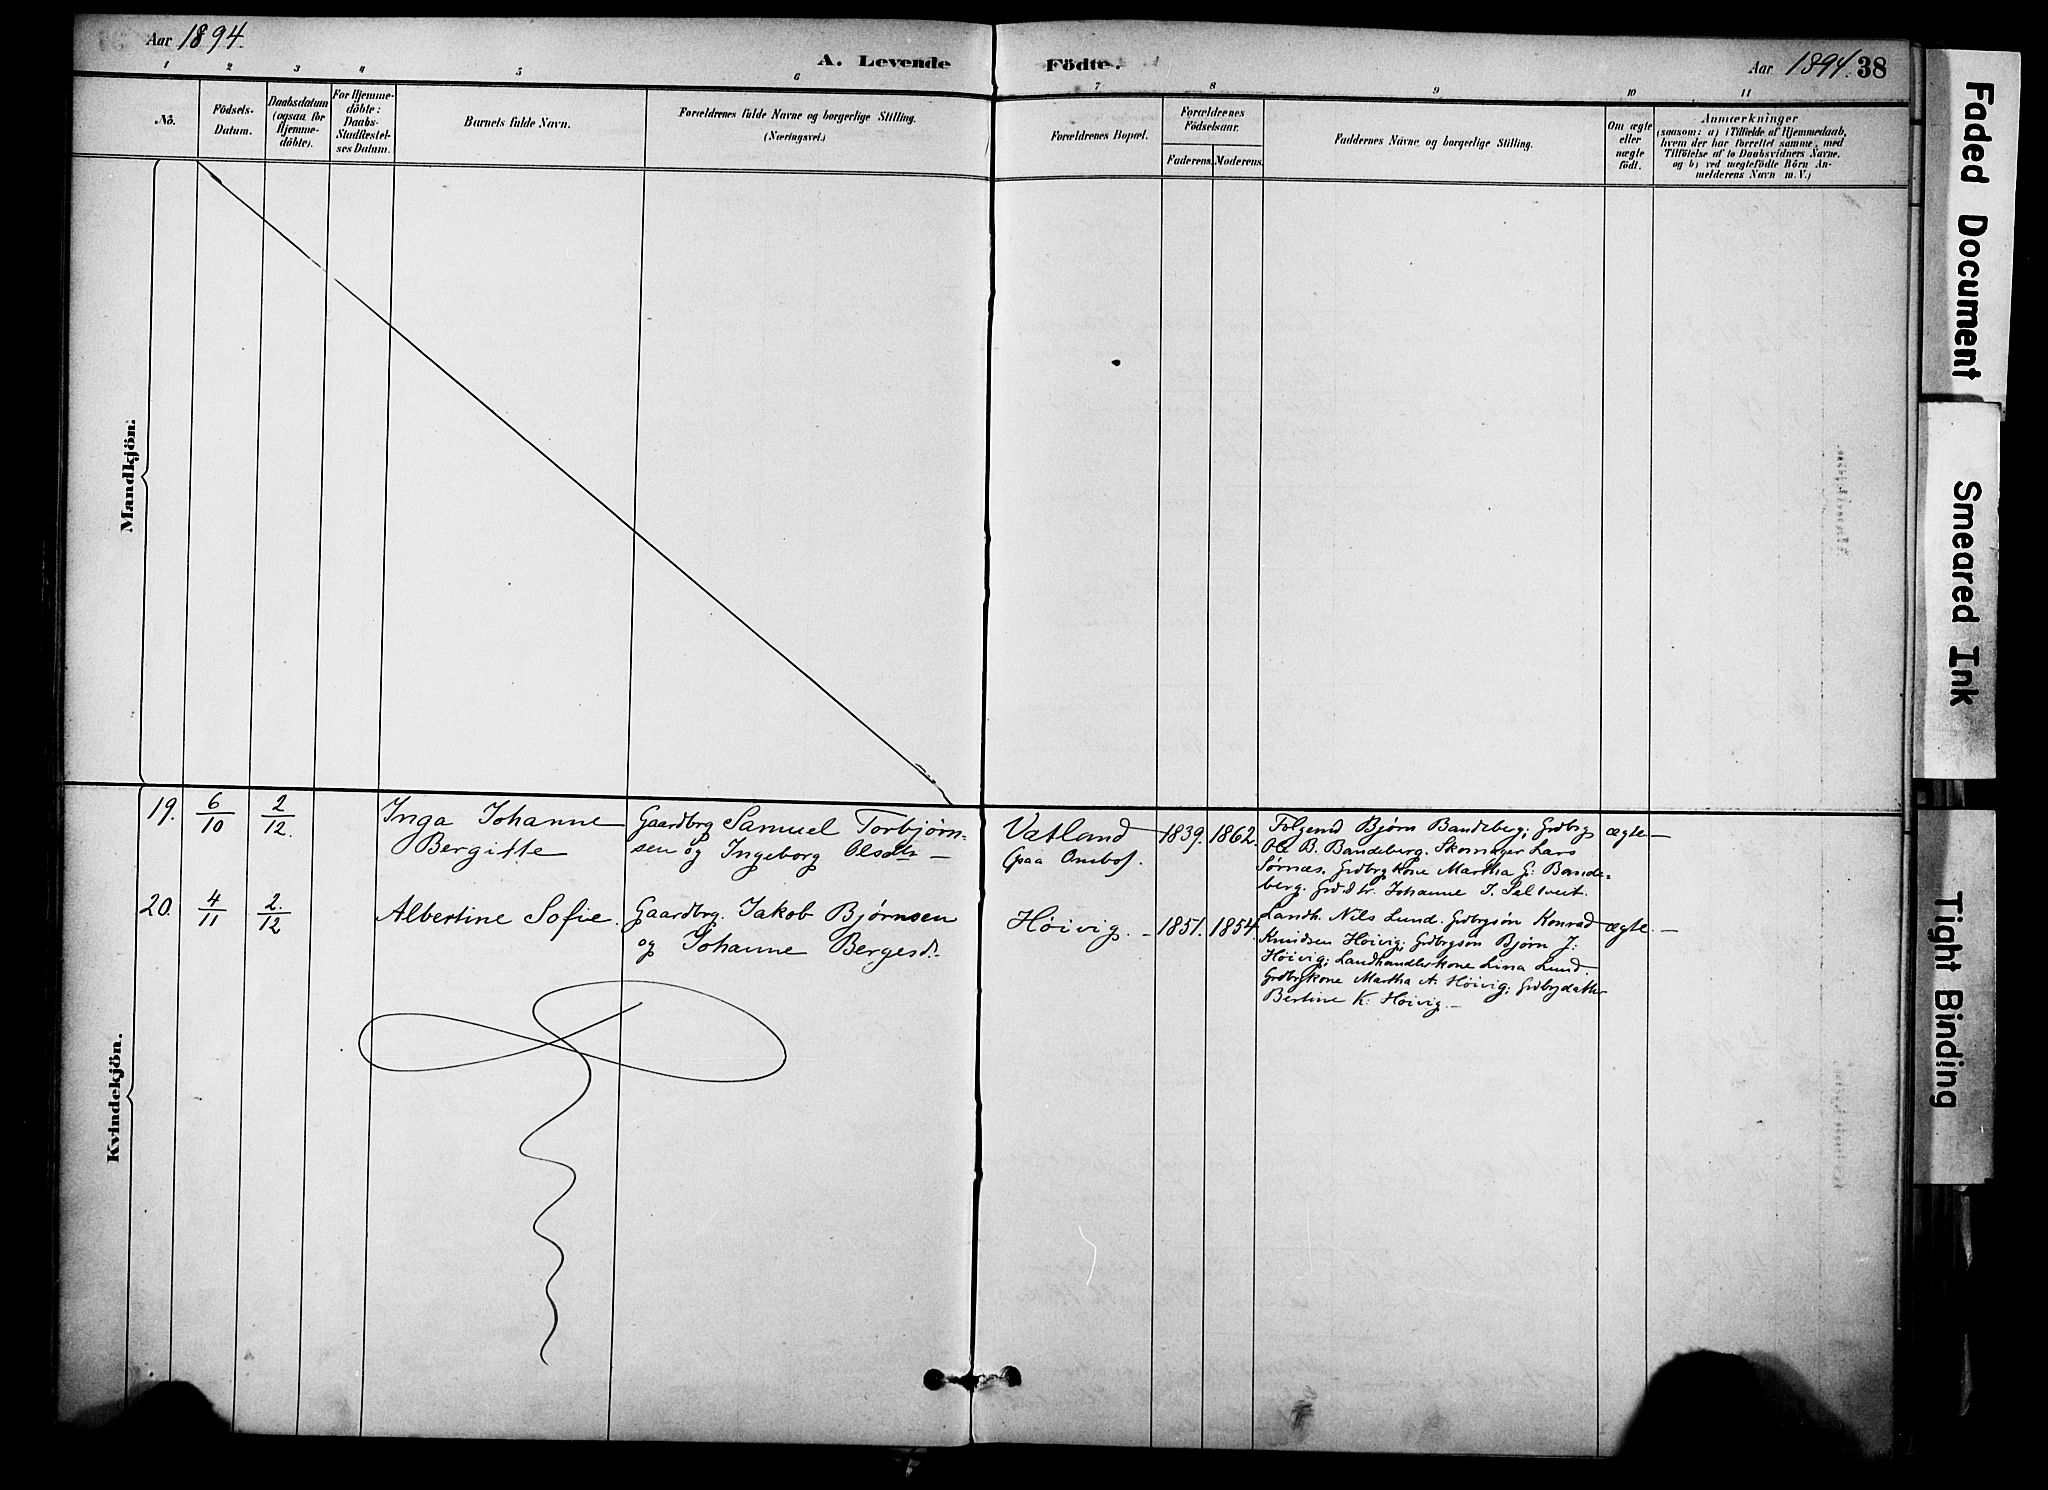 Aar 1894.
A. Levende Födte.
Aar 1894. 38
1 2 3 4 5 6 7 8 9 10 11
No.
Födsels-
Datum.
Daabsdatum
(ogsaa for
Hjemme-
döbte).
For Hjemme-
döbte:
Daabs-
Stadfæstel-
ses Datum.
Barnets fulde Navn.
Forældrenes fulde Navne og borgerlige Stilling.
(Næringsvei.)
Forældrenes Bopæl.
Forældrenes
Födselsaar.
Faderens. Moderens.
Faddernes Navne og borgerlige Stilling.
Om ægte
eller
uægte
födt.
Anmærkninger
(saasom: a) i Tilfælde af Hjemmedaab,
hvem der har forrettet samme, med
Tilföielse af to Daabsvidners Navne.
og b) ved uægtefödte Börn An-
melderens Navn m. V.)
Mandkjön.
Kvindekjön.
19. 6/10 2/12.
Inga Johanne
Bergitte
Gaardbrg Samuel Torbjørn-
sen og Ingeborg Olsdtr —
Vatland
(paa Ombo).
1839. 1862.
Bjørn Bandeberg; Grdbrg
Ole B. Bandeberg. Skomager Lars
Sørnæs, Grdbrgkone Martha G: Bande-
berg. Grd.dtr. Johanne
ægte —
20. 4/11 2/12
Albertine Sofie.
Gaardbrg. Jakob Bjørnsen
og Johanne Bergesd.
Høivig. —
1851. 1854.
Landh. Nils Lund. Grdbrgsøn Konrad
Knudsen Høivig; Grdbrgsøn Bjørn J:
Høivig; Landhandlerkone Lina Lund.
Grdbrgkone Martha A: Høivig; Grdbrgdatter
Bertine K: Høivig. —
ægte. —
Faded Document
Smeared Ink
Tight Binding